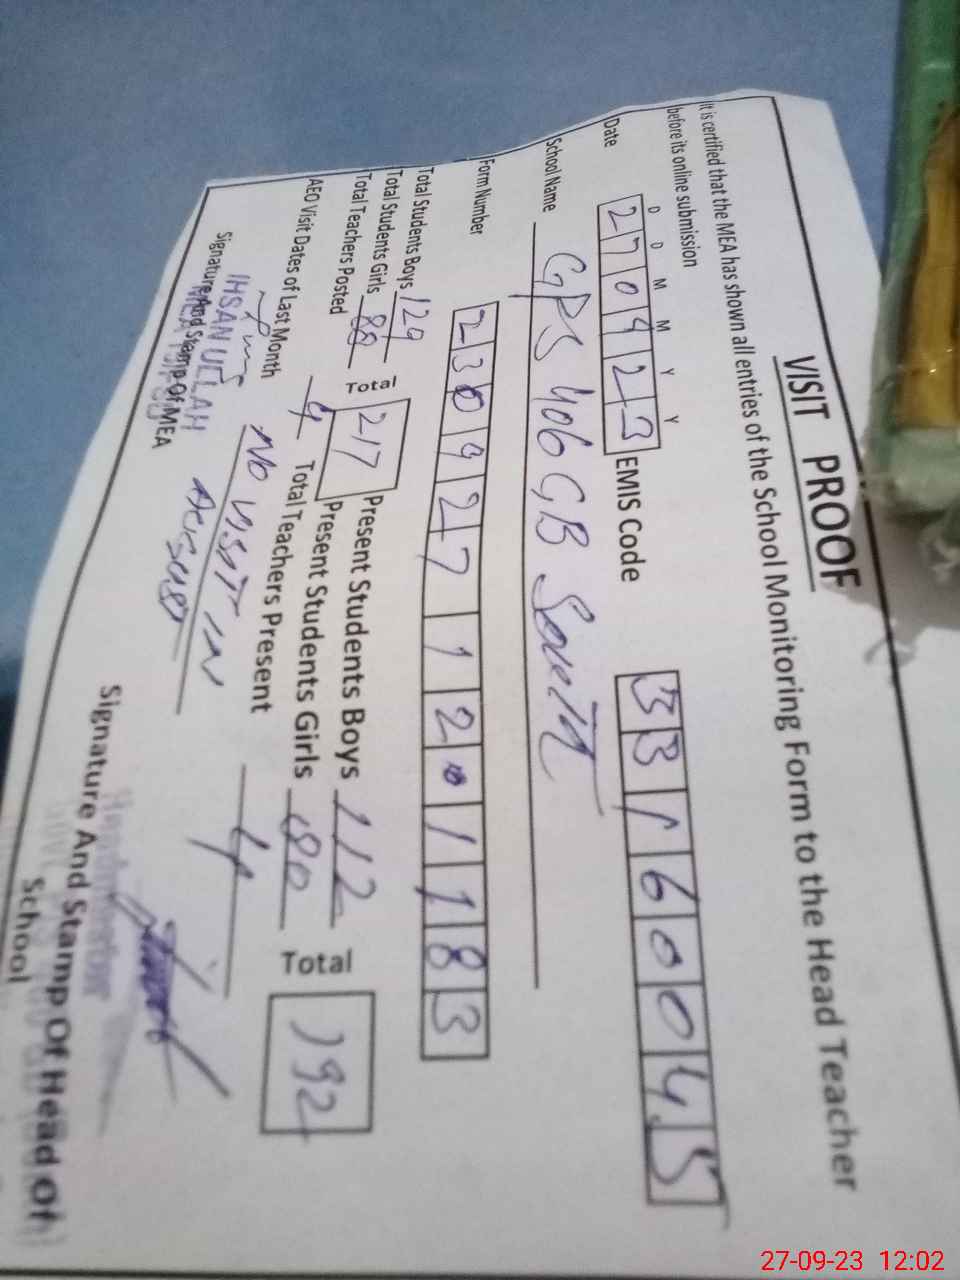 VISIT PROOF
It is certified that the MEA has shown all entries of the School Monitoring Form to the Head Teacher
before its online submission
D D M M Y Y
Date 270923 EMIS Code 33160045
School Name GPS 406 GB South
Form Number 2309271201183
Total Students Boys 129 Total 217 Present Students Boys 112 Total 192
Total Students Girls 88 Present Students Girls 80
Total Teachers Posted 4 Total Teachers Present 4
AEO Visit Dates of Last Month No visit in
August
IHSAN ULLAH
Signature And Stamp Of MEA
Signature And Stamp Of Head Of
School
27-09-23 12:02